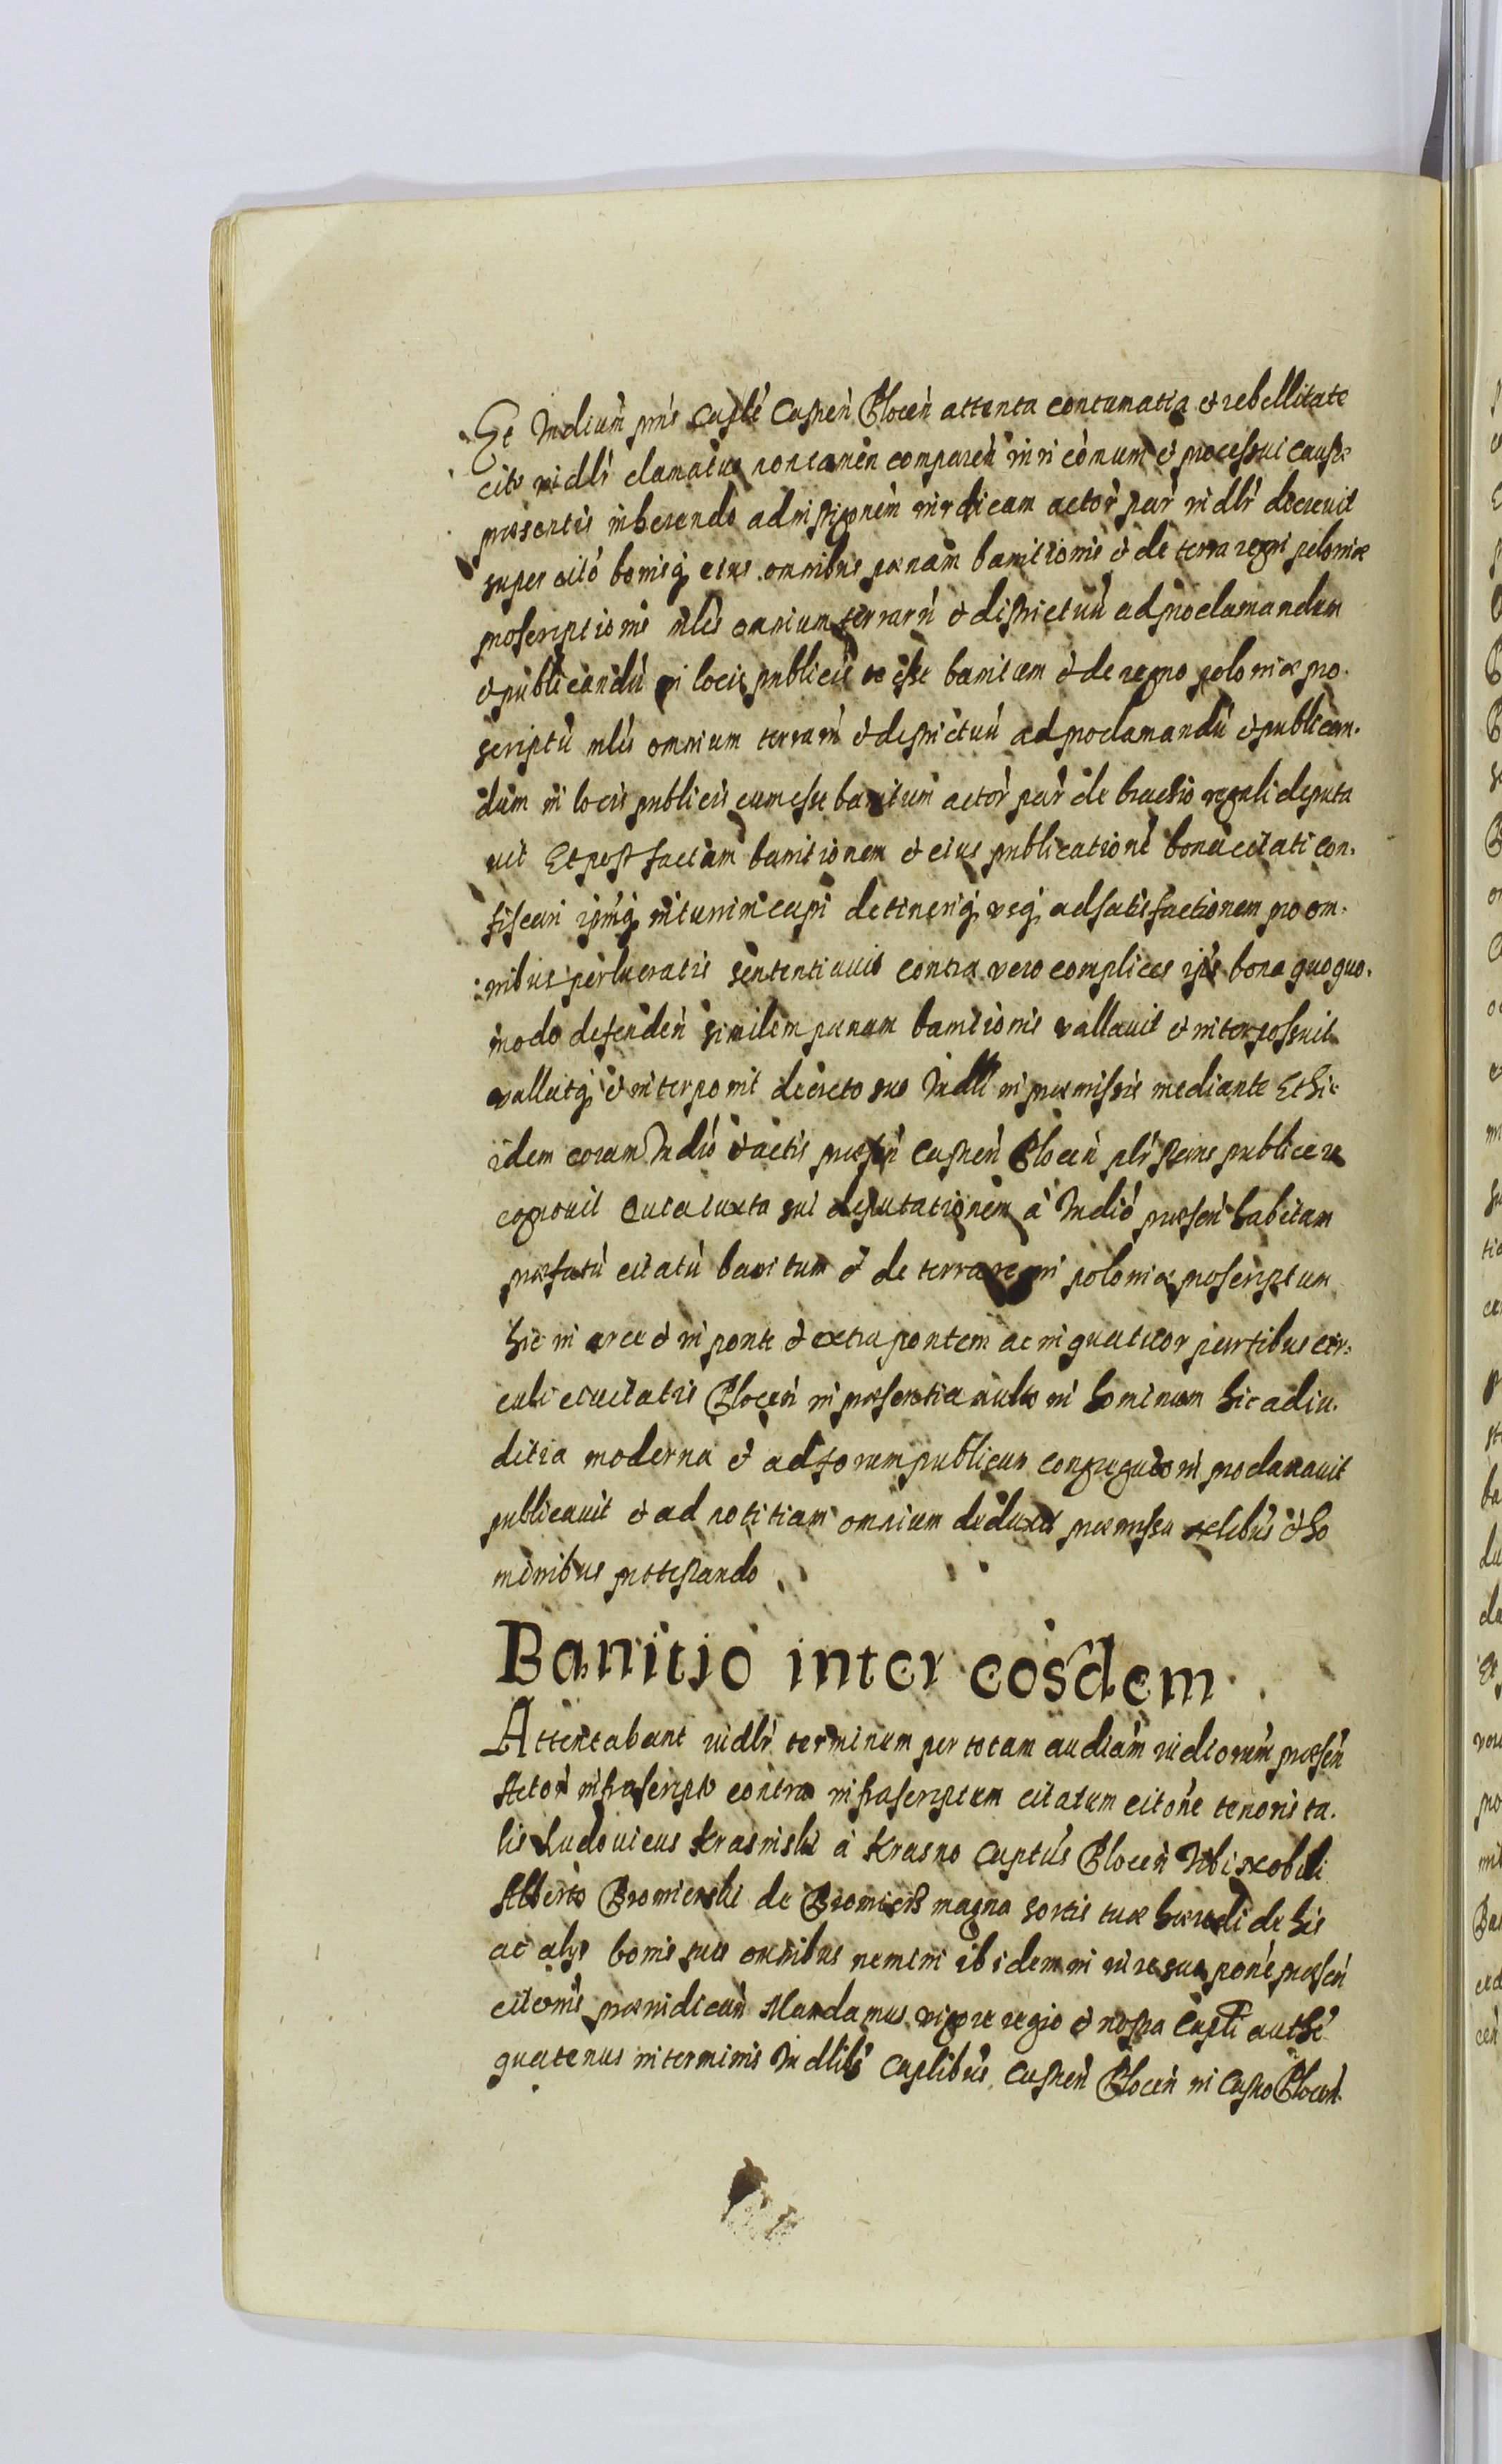 Et Iudium pns Caplē Castreń Ploceń attenta contumatia et rebellitate
cito iudlr clamatus non tamen compareń iuri cōmuni et processui causæ
præsentis inherendo ad instigonem iuridicam actor par iudlr decreuit
super cito bonisq eius omnibus pœnam banitionis et de terra regni poloniæ
proscriptionis mlis omnium terrarū et districtuū ad proclamandum
et publicandū in locis publicis se esse banitum et de regno poloniæ pro.
scriptū mlis omnium terrarū et districtuū ad proclamandū et publican.
dum in locis publicis eum esse banitum actor par de brachio regali deputa
uit Et post factam banitionem et eius publicationē bona citati con.
fiscari ipmq in turrim capi detineriq usq ad satisfactionem pro om.
nibus perlucratis sententiauit contra vero complices ipsi bona quoquo.
modo defendeń similem pœnam banitionis vallauit et interpossuit
vallatq et interponit decreto suo Iudli in præmissis mediante Et hic
idem coram Iudio et actis præseń Castreń Ploceń plr stans publice re
cognouit Quia iuxta sui deputationem à Iudio præseń habitam
præfatū citatū banitum et de terra regni poloniæ proscriptum
hic in arce et in ponte et extra pontem ac in quatuor partibus cir.
culi ciuitatis Ploceń in præsentia multo m̄ hominum hic ad iu.
ditia moderna et ad forum publicum congregatorm̄ proclamauit
publicauit et ad notitiam omnium deduxit præmissa nobilibus et ho
minibus protestando
Banitio inter eosdem
Attentabant iudlr terminum per totam audiām iudiorum præseń
Actor infrascripto contra infrascriptum citatum citone tenoris ta.
lis Ludouicus Krasinski à Krasno Captus Ploceń Tibi Nobili
Alberto Bromierski de Bromierz magna sortis tuæ hæredi de his
ac alys bonis suis omnibus nemini ibidem in iure suo ponē præseń
citonis præiudicań Mandamus vigore regio et nostra Capli authē
quatenus in terminis Iudlibs Caplibus Castreń Ploceń in Castro Ploceń